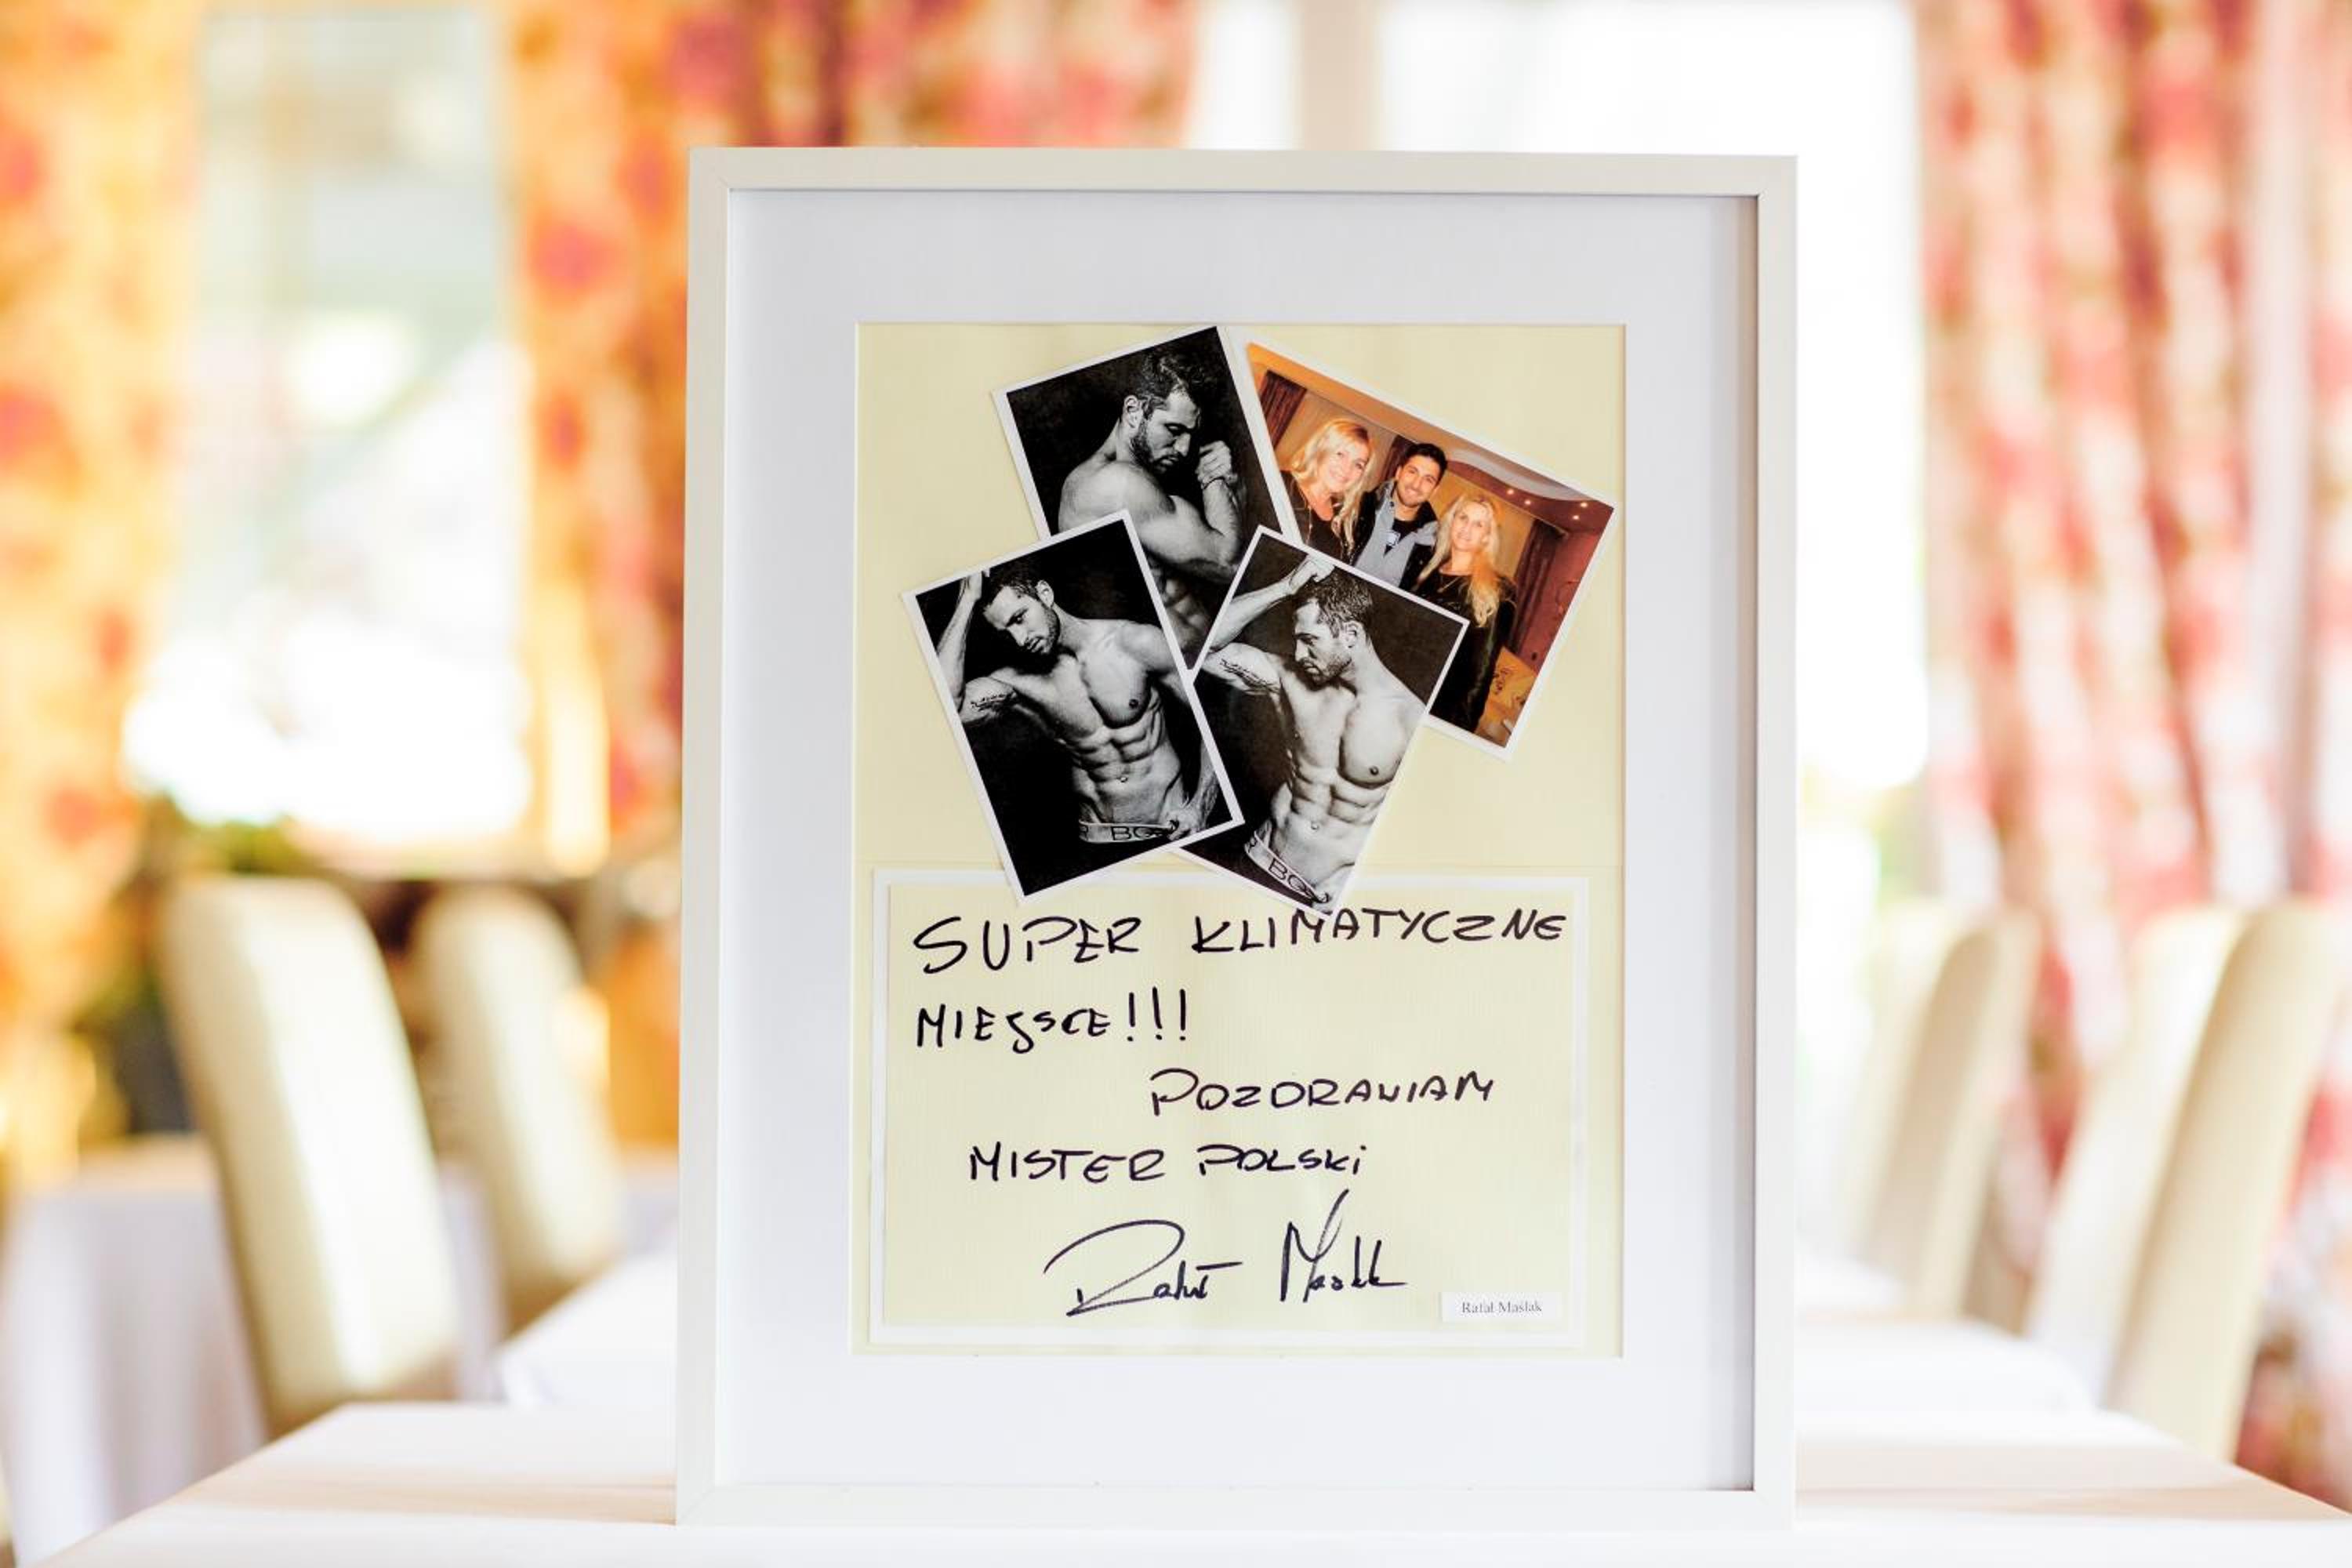 BO
BO
SUPER KLIMATYCZNE
MIEJSCE!!!
POZDRAWIAM
MISTER POLSKi
Rafał Maślak
Rafał Maślak